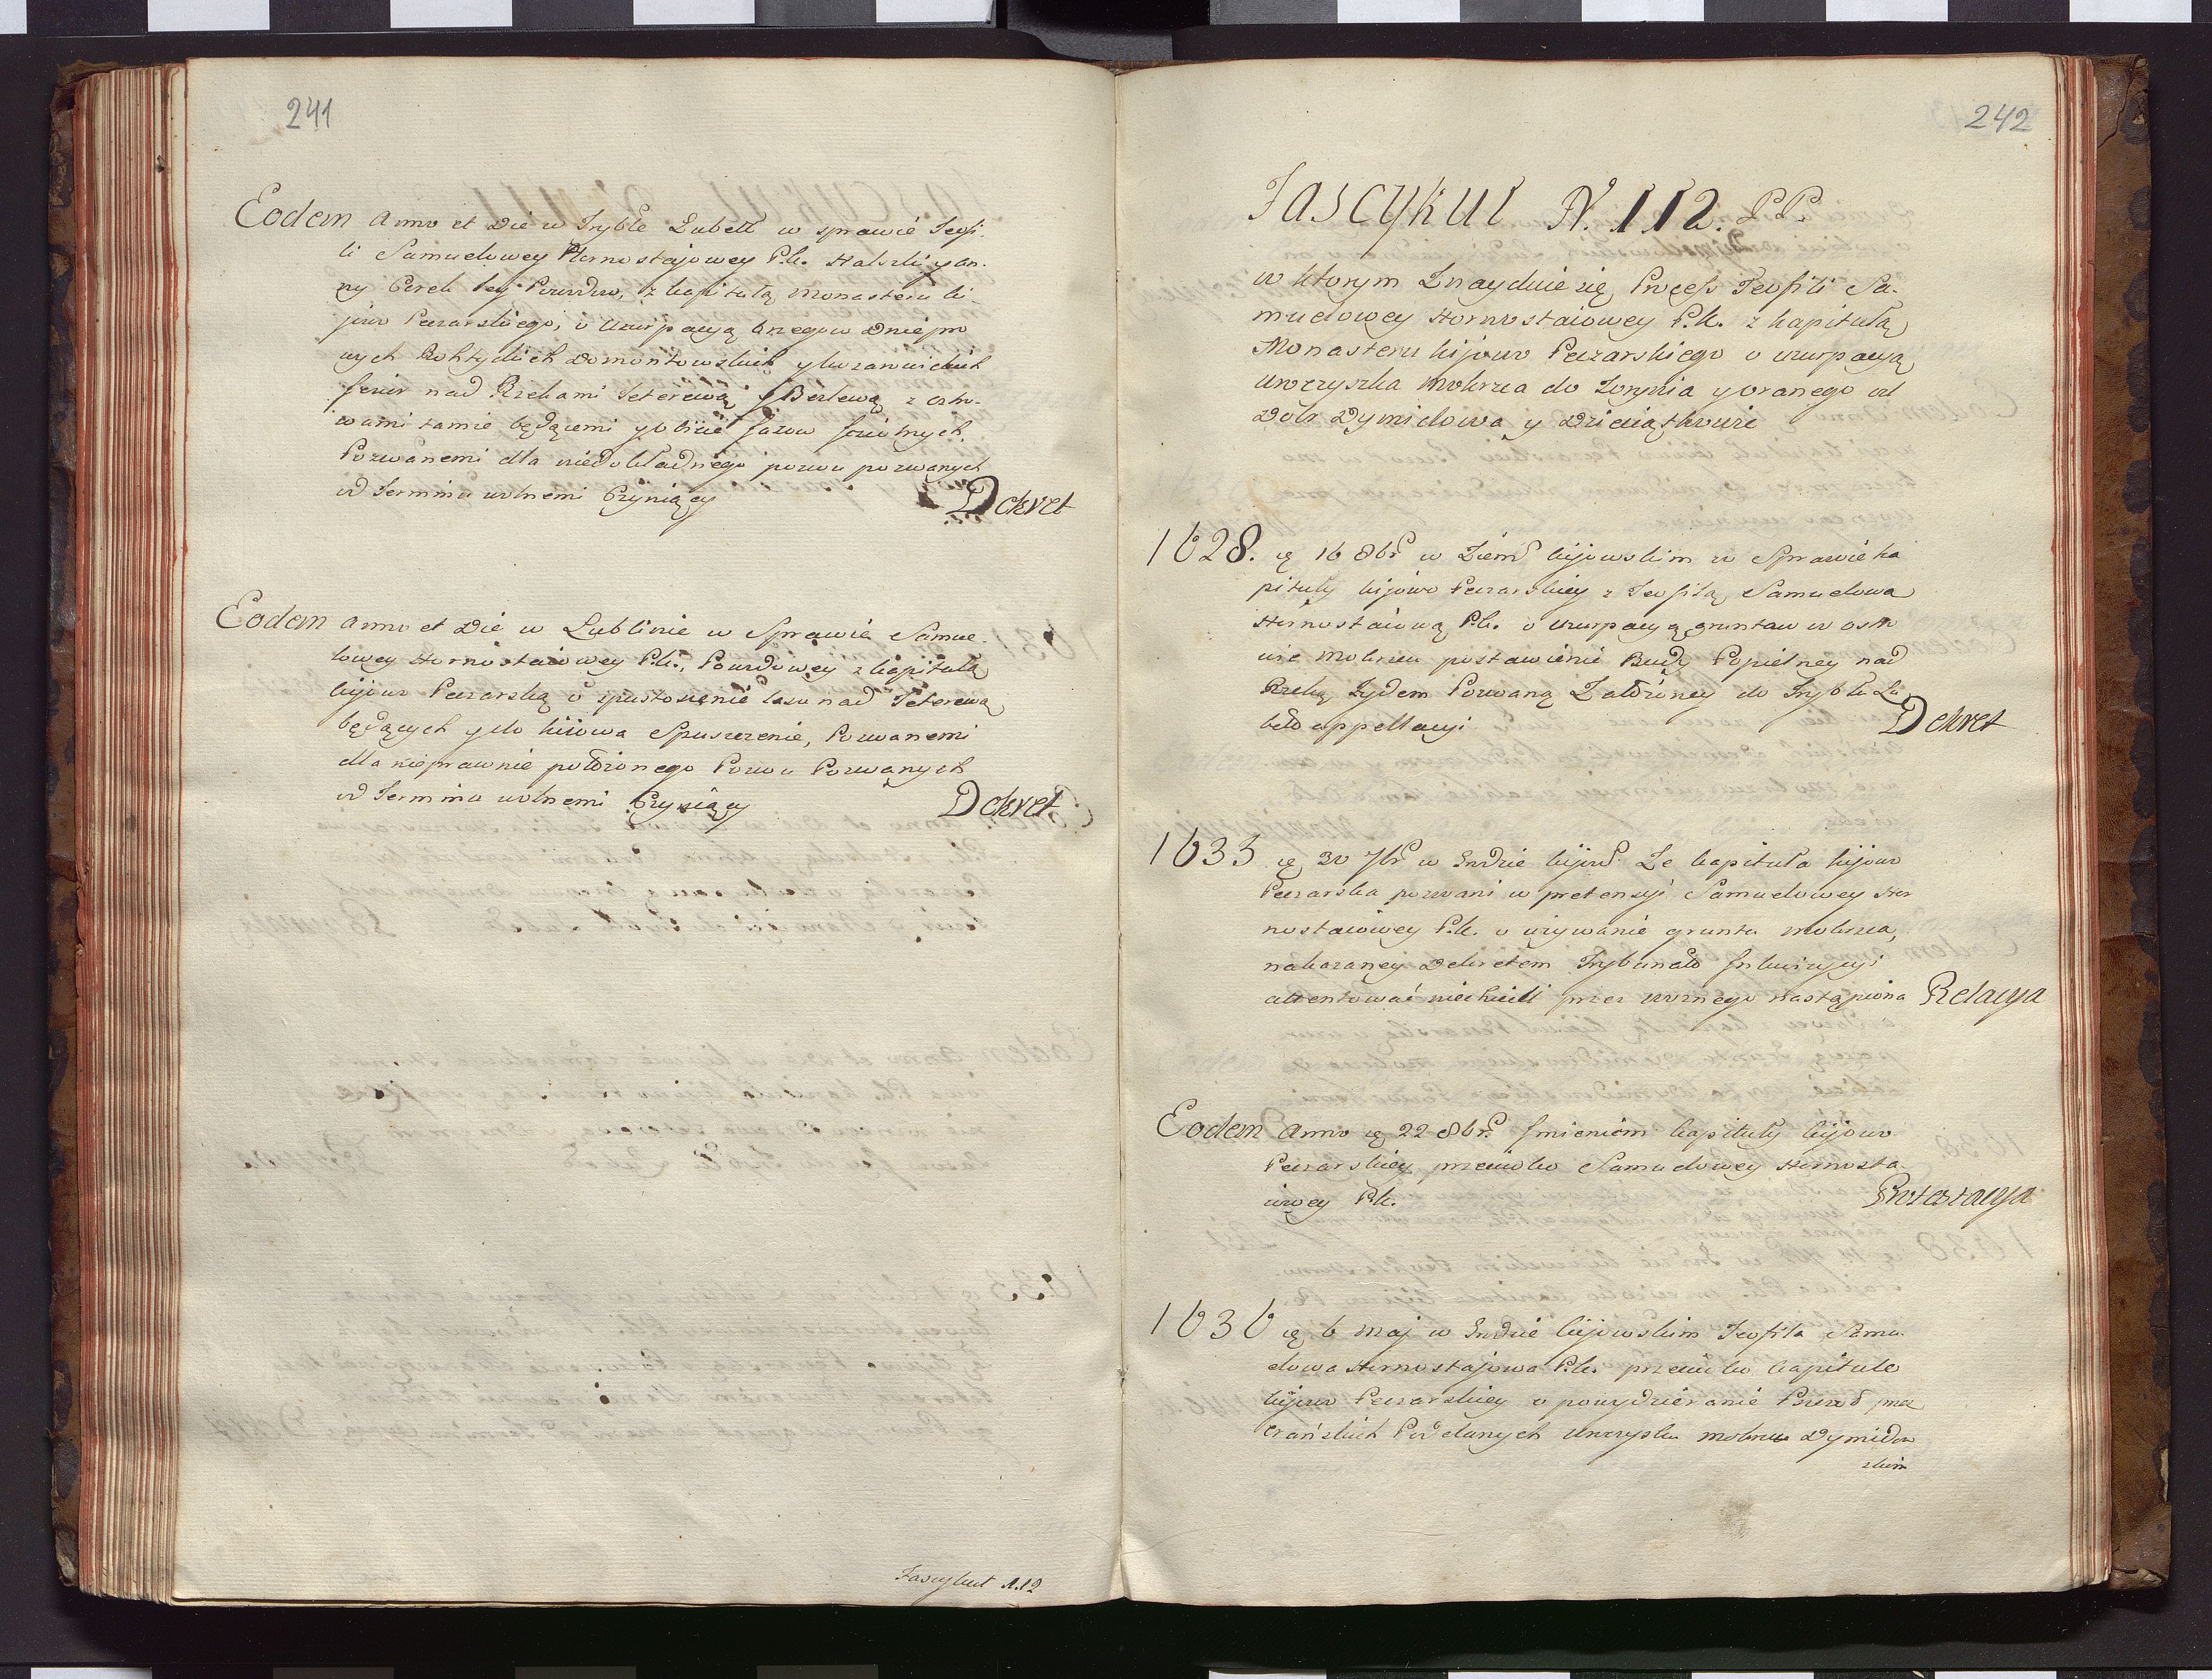 241
Eodem Anno et Die w Tryble Lubell w sprawie Teofi-
li Samuelowey Hornostajowey P.K. Halszki y An-
ny Corek tey Powodow, z kapitułą Monasteru ki-
jowo Pieczarskiego, o uzurpacyą brzegow Dniepro
wych Domontowskich
Jezior nad Rzekami Teterewą y Berlewą z ostro-
wami tamie będącemi y o bicie Jazow
Pozwanemi dla niedokładnego pozwu pozwanych
od Termina wolnemi Czyniący Dekret
Eodem anno et Die w Lublinie w Sprawie Samue-
lowey Hornostaiowey P.K., Powodowey z kapitułą
kijowo Pieczarską o spustoszenie lasu nad Teterewą
będących y do kiiowa Spuszczenie, Pozwanemi
dla nieprawnie położonego Pozwu Pozwanych
od Termina wolnemi Czyniący Dekret
Fascykuł 112
242
Fascykuł N. 112. PP.
w ktorym Znayduie się Process Teofili Sa-
muelowey Hornostaiowey P.K. z kapitułą
Monasteru kijowo Pieczarskiego o uzurpacyą
Uroczyszka Mokrza do y oranego od
Dobr Dymidowa y Dziciątkowic
1628. ę 16 8br w Ziem kijowskim w Sprawie ka
pituły kijowo Pieczarskiey z Teofilą Samuelowa
Hornostaiową P.K. o uzurpacyą gruntow w ostro
wie Mokrcu postawienie Budy Popielney nad
Rzeką Pozwaną Założoney do Trybłu Lu
belo appellacyi Dekret
1633 ę 30 7br w Grodzie kijow Ze kapituła kijowo
Pieczarska pozwani w pretensyi Samuelowey Hor
nostaiowey P.K. o używanie gruntu Mokrca,
nakazaney Dekretem Trybunało Inkwizycyi
attentować niechcieli przez woznego nastąpiona Relacya
Eodem Anno ę 22 8br. Imieniem kapituły kijowo
Pieczarskiey przeciwko Samuelowey Hornosta-
iowey P.K. Protestacya
1636 ę 6 Maj w Grodzie kijowskim Teofila Samu-
elowa Hornostajowa P.K. przeciwko kapitule
kijowo Pieczarskiey o powydzieranie
Poddanych Uroczysku Mokrcu Dymidow
skim